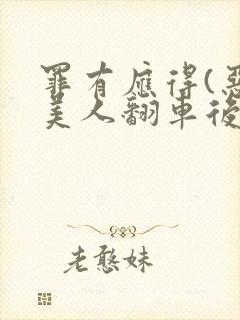 罪有應得(惡
美人翻車後
老憨妹